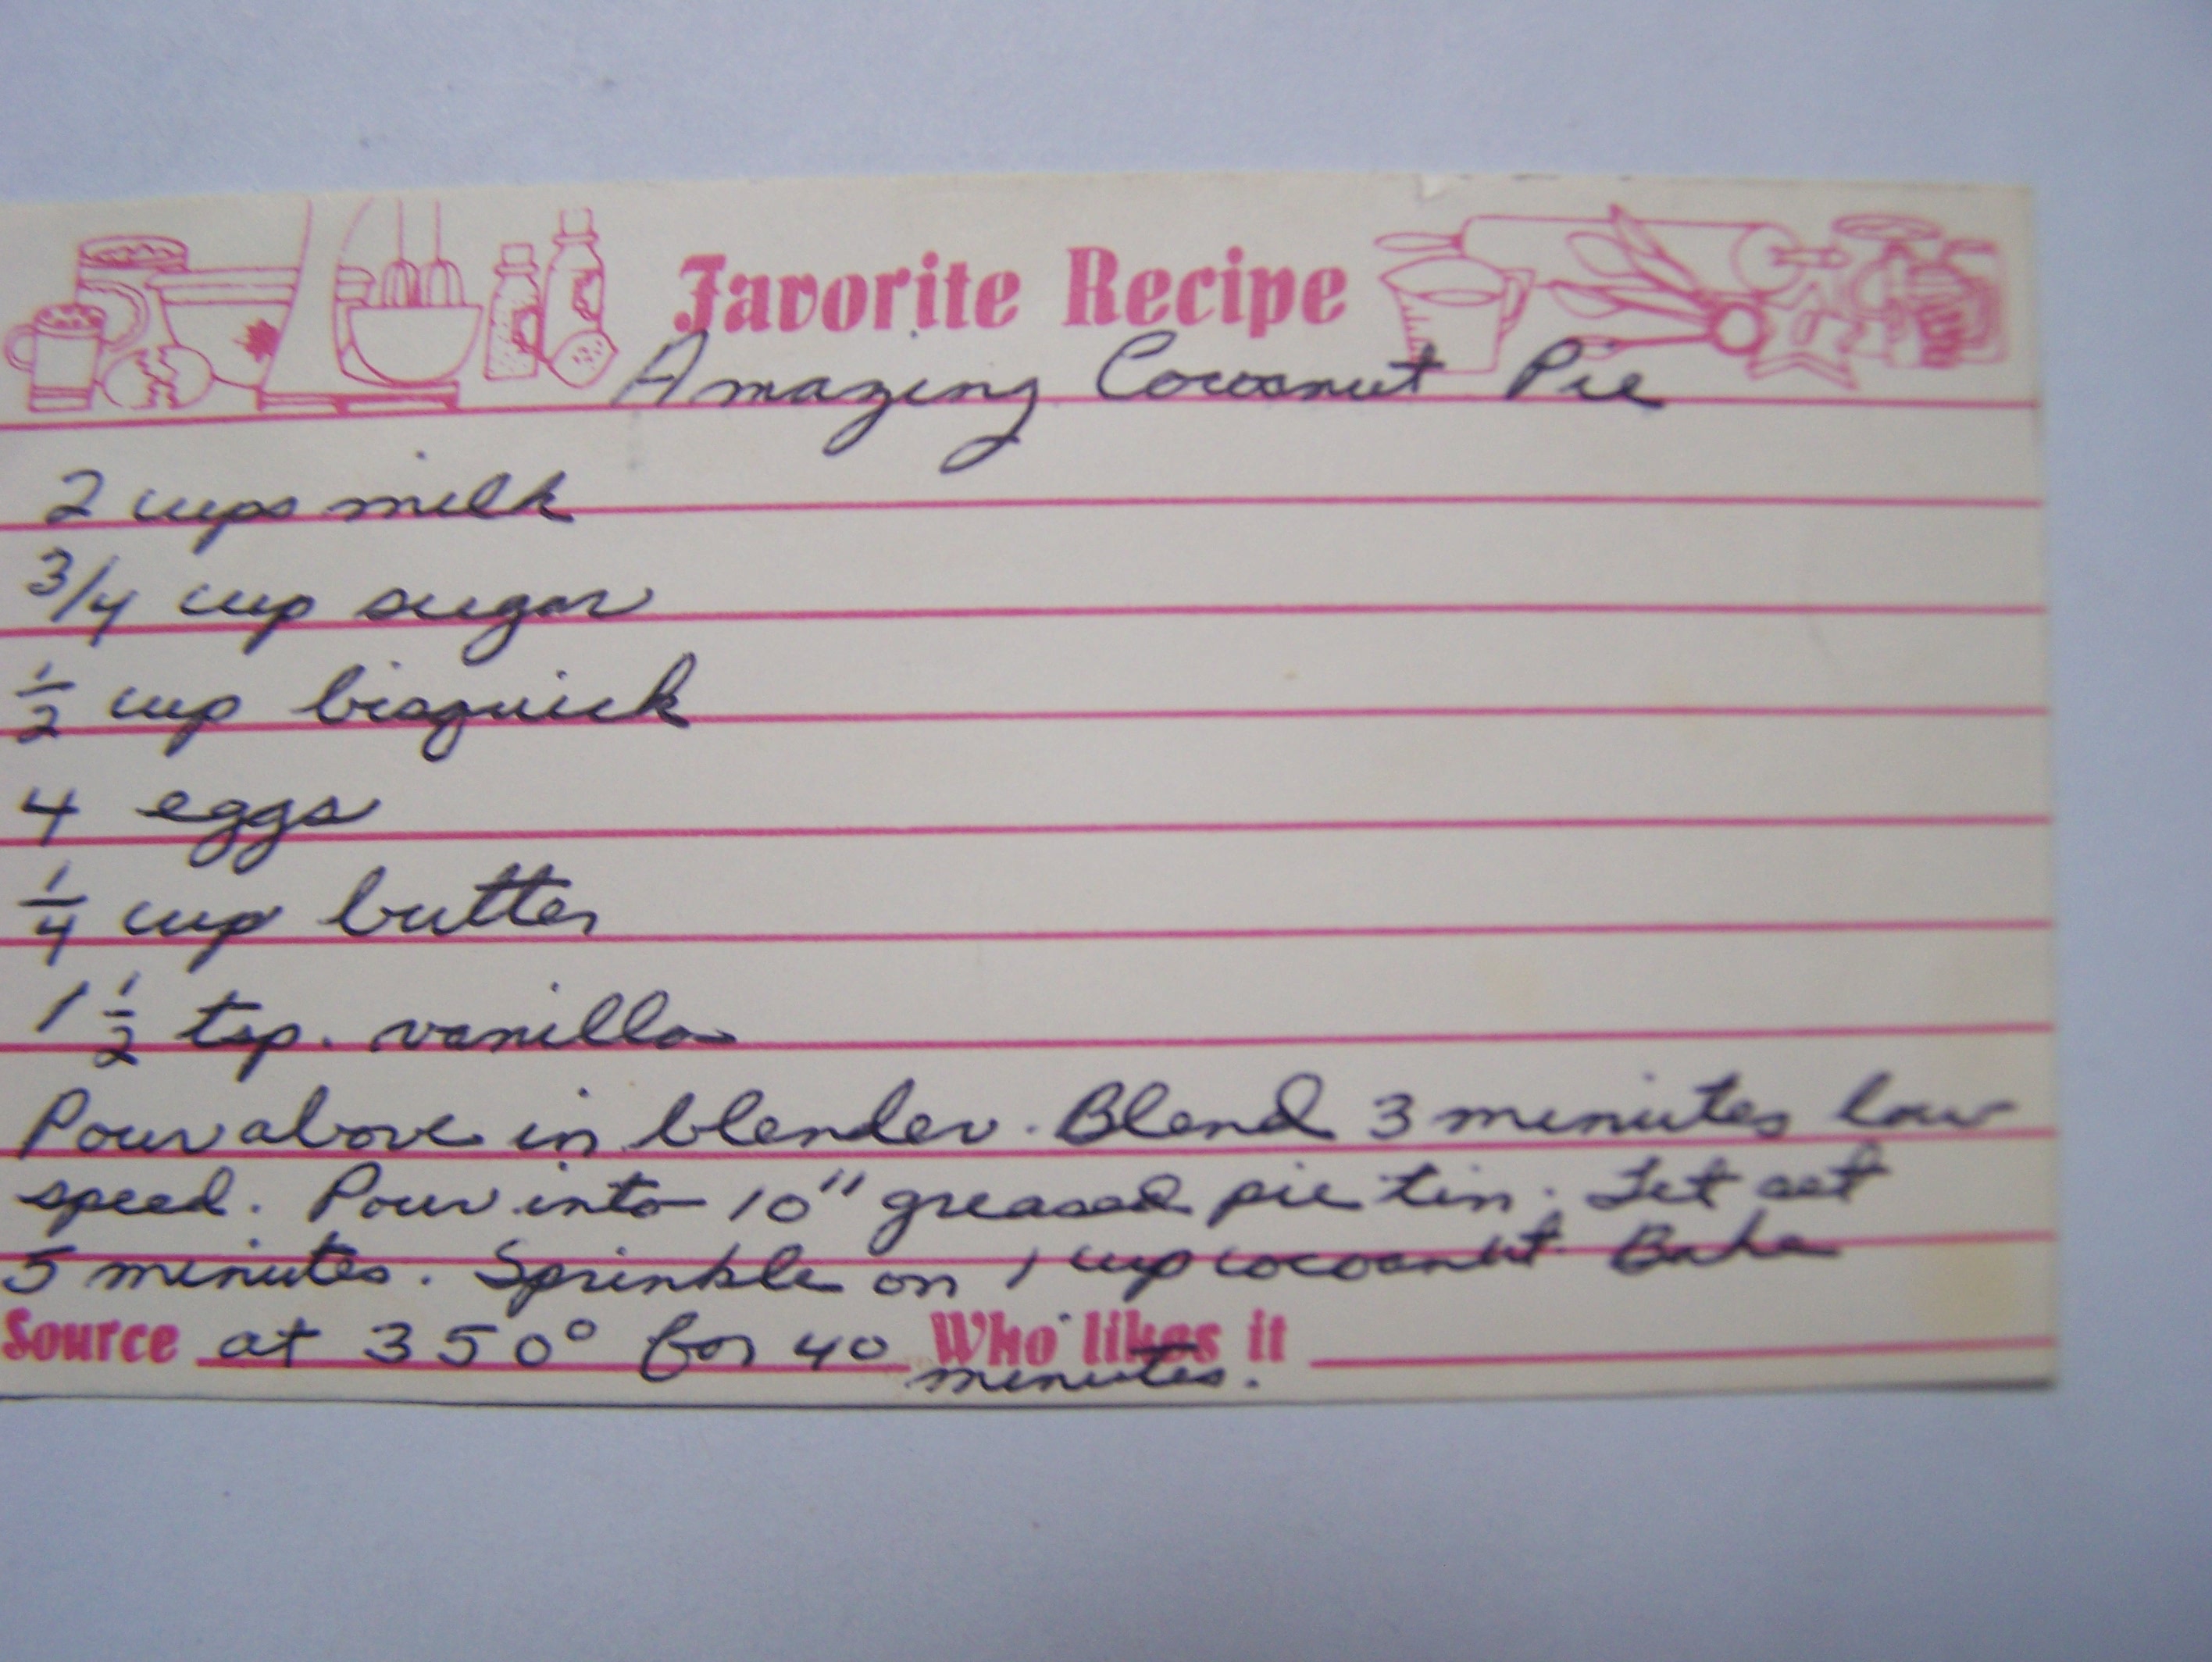 Favorite Recipe
Amazing Cocoanut Pie
2 cups milk
3/4 cup sugar
1/2 cup bisquick
4 eggs
1/4 cup butter
1 1/2 tsp. vanilla
Pour above in blender. Blend 3 minutes low
speed. Pour into 10" greased pie tin. Let set
5 minutes. Sprinkle on 1 cup cocoanut. Bake
Source at 350° for 40 Who likes it
minutes.